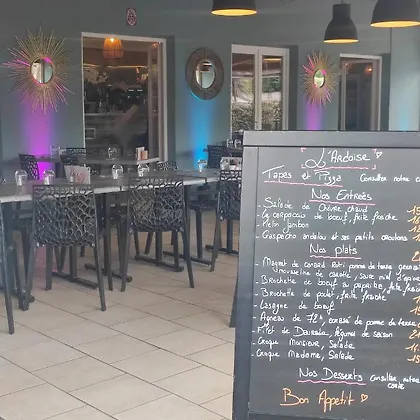 L'Ardoise
Tapas et Pizza Consulter notre carte
Nos Entrées
- Salade de chèvre chaud
- Le carpaccio de boeuf, frite fraîche
- Melin jambon
- Gaspacho andalou et ses petits croutons
Nos plats
- Magret de canard Roti, pomme de terre grenaille
mousseline de carotte, sauce miel d'
- Brochette de boeuf au paprika, frite fraîche
- Brochette de poulet, frite fraîche
- Lasagne de boeuf
- Agneau de 7h, écrasé de pomme de terre
- Filet de Daurade, légumes de saison
- Croque Monsieur, Salade
- Croque Madame, Salade
Nos Desserts Consulter notre
carte
Bon Appétit